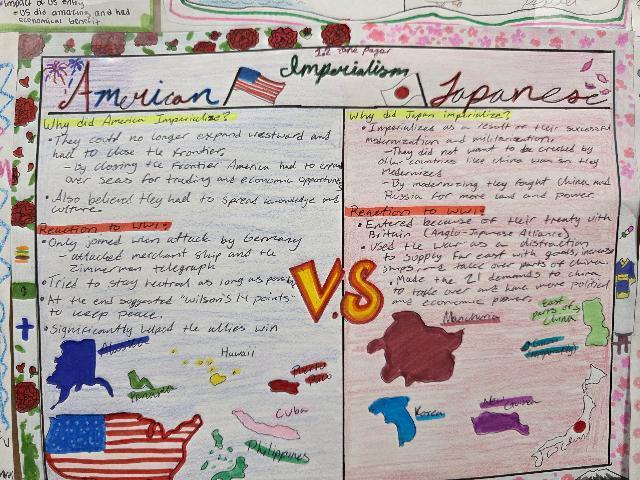 Impact of US entry
- US did amazing and had
economical benefit
Imperialism
American
Japanese
Why did America Imperialize?
• They could no longer expand westward and
had to close the frontier.
- By closing the Frontier America had to expand
over seas for trading and economic opportunity
• Also believed they had to spread knowledge and
culture.
Reaction to WW1:
• Only joined when attack by Germany
- attacked merchant ship and the
zimmerman telegraph
• Tried to stay neutral as long as possible
• At the end suggested "Wilson's 14 points"
to keep peace.
• Significantly helped the allies win
Alaska
Hawaii
Panama
Puerto
Rico
Cuba
Philippines
V.S
Why did Japan imperialize?
• Imperialized as a result of their successful
modernization and militarization.
- They did not want to be treated by
other countries like China was so they
Modernized
- By modernizing they fought China and
Russia for more land and power.
Reaction to WW1:
• Entered because of their treaty with
Britain (Anglo-Japanese Alliance)
• Used the war as a distraction
to supply far east with goods, increase
ships and take over parts of China.
• Made the 21 demands to China
to take over and have more political
and economic power.
Manchuria
East
parts of
China
Korea
New Guinea